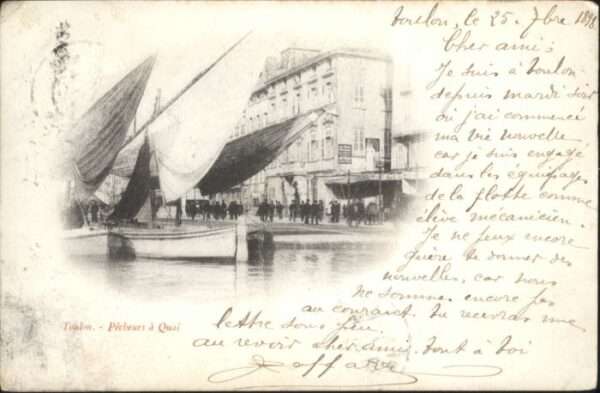 Toulon, le 25. 7bre 1898
Cher ami;
Je suis à toulon
depuis mardi soir
où j'ai commencé
ma vie nouvelle
car je suis engagé
dans les equipages
de la flotte comme
élève mécanicien.
Je ne peux encore
guère te donner des
nouvelles, car nous
ne sommes encore pas
au courant. tu recevras une
lettre sous peu.
au revoir cher ami. tout à toi
Toulon. - Pêcheurs à Quai